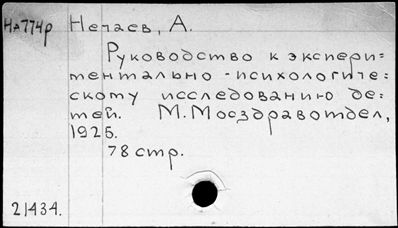 На774р Нечаев, А.
Руководство к экспери=
ментально-психологиче=
скому исследованию де=
тей. М. Мосздравотдел,
1925.
78 стр.
21434.